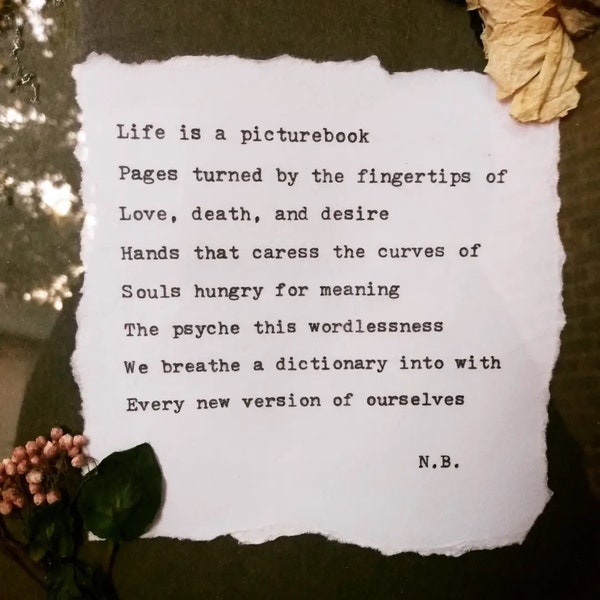 Life is a picturebook
Pages turned by the fingertips of
Love, death, and desire
Hands that caress the curves of
Souls hungry for meaning
The psyche this wordlessness
We breathe a dictionary into with
Every new version of ourselves
N.B.